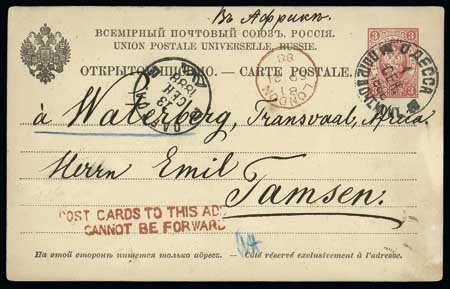 Въ Африкѣ.
ВСЕМІРНЫЙ ПОЧТОВЫЙ СОЮЗЪ. РОССІЯ.
UNION POSTALE UNIVERSELLE. RUSSIE.
ОТКРЫТОЕ ПИСЬМО. — CARTE POSTALE.
3
3
3
ОДЕССА
LONDON
88
à Waterberg, Transvaal, Africa
Herrn Emil
Tamsen.
POST CARDS TO THIS AD
CANNOT BE FORWARD
На этой сторонѣ пишется только адресъ. — Côté réservé exclusivement à l'adresse.